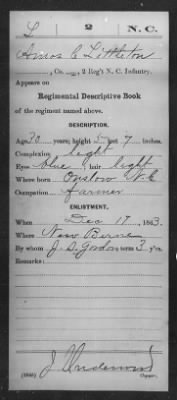 L 2 N.C.
Amos C Littleton
, Co. , 2 Reg't N. C. Infantry.
Appears on
Regimental Descriptive Book
of the regiment named above.
DESCRIPTION.
Age 30 years; height 5 feet 7 inches.
Complexion light
Eyes blue ; hair light
Where born Onslow N.C
Occupation farmer
ENLISTMENT.
When Dec 17, 1863.
Where New Berne
By whom J. S. Gordon term 3 y'rs.
Remarks:
J Underwood
Copyist.